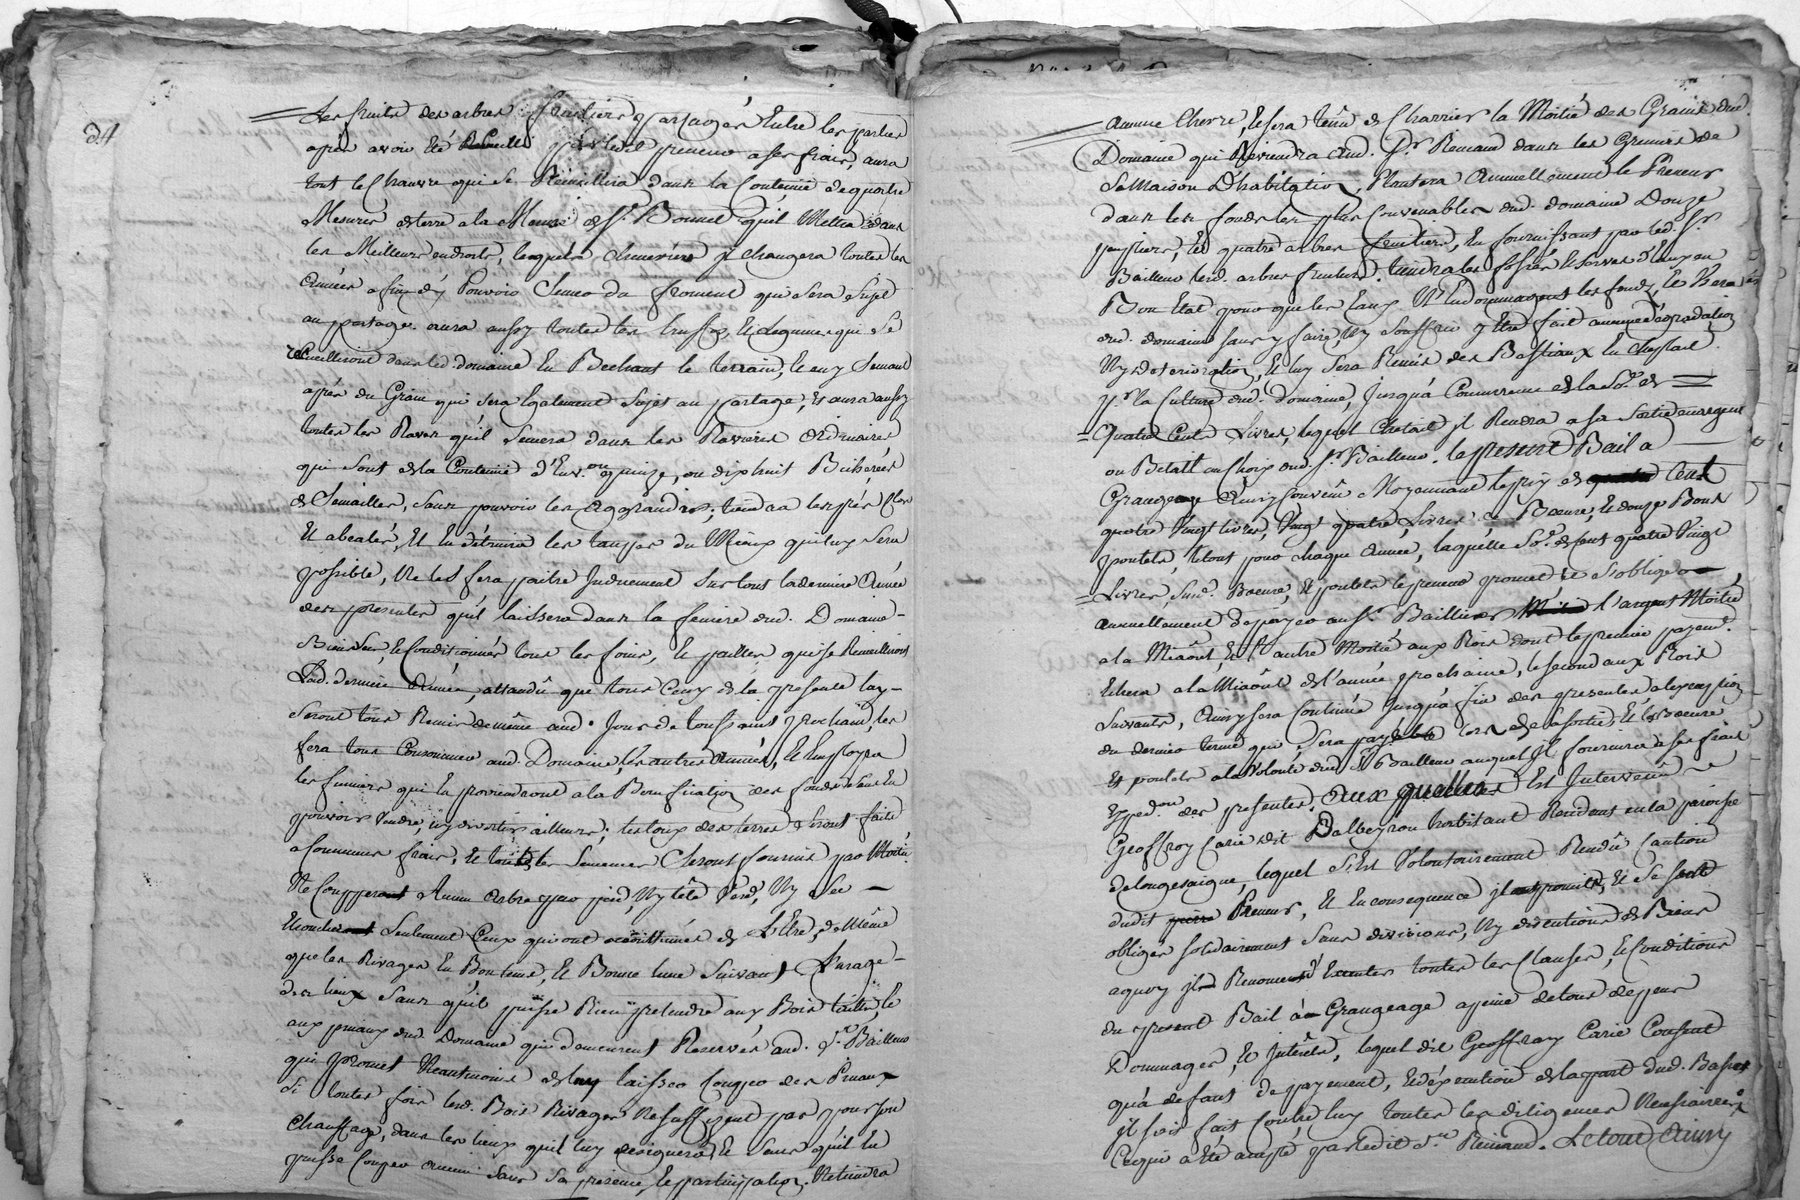 24
Les fruits des arbres fruitiers partagés Entre les parties
apres avoir Eté Receuilli par ledit preneur a ses frais, aura
tout le Chanvre qui se Reüeillira dans la Contenüe de quatre
Mesures de terre a la Mesure de St. Bonnet qu'il Mettra dans
les Meilleurs endroits, lesquels cheneviere il changera toutes les
Années affin d'y Pouvoir Semer du froment qui Sera Sujet
au partage. aura aussy toutes les truffes, et legumes qui Se
reCueilliront dans led. domaine En Bechant le terrain, et en y Semant
après du Grain qui sera Egalement Sujet au partage, Et aura aussy
toutes les Raves qu'il Semera dans les Ravieres ordinaires
qui sont de la Contenüe d'Env.on quinze, ou dixhuit Bicherées
de Semailles, Sans pouvoir les Aggrandir; tiendra les prés Clos
Et abealés, Et En détruira les taupes du Mieux qui luy Sera
possible, Ne les fera paitre Induement Surtout la derniere Année
des presentes qu'il laissera dans la feniere dud. Domaine
Bien Sec, et Conditionnés tous les foins, et pailles qui se Reüeilliront
Lad. derniere Année, attandû que tous Ceux de la presente lay
Seront tous Remis de même aud. Jour de toussaint prochain, les
fera tous Consommer aud. Domaine, les autres Années, et Employera
les fumiers qui En proviendront a la Bonification des fonds Sans En
pouvoir Vendre, ny divertir ailleurs; les toux des terres Seront faits
a Communs frais, et toutes les Semences Seront fournis par Moitié
Ne Coupera Aucun Arbre par pied, Ny tête Verd, Ny Sec
Emondera Seulement Ceux qui ont accoûttumés de L'Etre, de Même
que les Rivages En Bon tems, et Bonne lune Suivant L'usage
des lieux Sans qu'il puisse Rien pretendre aux Bois taillis, et
aux pinaux dud. Domaine qui demeurent Reservés aud. Sr. Bailleur
qui promet Neantmoins de luy laisser Couper des Pinaux
Si toutes fois lesd. Bois Rivages Ne Suffizent pas pour Son
Chauffage, dans les lieux qu'il luy designera, Et Sans qu'il En
puisse Couper aucun Sans Sa presence, et participation. Nitiendra
Aucune Chevre, Et Sera tenû de Charrier la Moitié des Grains dud.
Domaine qui Reviendra aud. Sr. Remaud dans les Greniers de
Sa Maison D'habitation, Plantera Annuellement le Preneur
dans les fonds les plus Convenables dud. domaine Douze
peupliers, Et quatre arbres fruitiers, En fournissant par led. Sr.
Bailleur lesd. arbres fruitiers. tiendra les fossés, et Serves d'Eaux en
Bon Etat pour que les Eaux N'Endommagent les fonds, Et Beraux
dud. domaine Sans y faire, Ny Souffrir y Etre fait aucune dégradation
Ny deterioration, Et luy Sera Remis des Bestiaux En Cheptail
pr. la Culture dud. domaine, Jusqu'à Concurrance de la So.e de
Quatre Cents Livres, lequel Chetail il Rendra a sa Sortie en argent
ou Betail au Choix dud. Sr. Bailleur. le present Bail a
Grangeage Ainsy Convenû Moyennant le prix de Cent
quatre Vingt livres, Vingt quatre Livres de Beurre, et douze Bons
poulets, le tout pour chaque Année, laquelle So.e de Cent quatre Vingt
Livres, Susd. Beurre, et poulets le preneur promet et s'oblige
annuellement de payer au Sr. Bailleur l'argent Moitié
a la Miaôut, Et l'autre Moitié aux Rois dont le premier payemt.
Echera a la Miaôut de l'année prochaine, le Second aux Rois
Suivants, Ainsy Sera Continué jusqu'à fin des presentes a l'exception
du dernier terme qui Sera payable lors de Sa Sortie, Et le Beurre
Et poulets a la Volonté dud. Sr. Bailleur auquel Il fournira a Ses frais
Exped.on des presentes. Aux quelles Est Intervenû
Geoffroy Carie dit Dalbeyron habitant Residant en la paroisse
delongesaigne, lequel S'Est Volontairement Rendû Caution
dudit Preneur, Et En consequence il promit, Et Se
obliger Solidairement Sans division, Ny discution de Biens
aquoy il Renonce d'Executer toutes les Clauses, et Conditions
du present Bail à Grangeage a peine de tous depens
Dommages, Et Intérêts, lequel dit Geoffray Carie Consent
qu'a defaut de payement, Et d'éxecution de la part dud. Basset
il Soit fait Contre luy toutes les diligences Necessaires
Cequi a Eté accepté par ledit Sr. Remaud. Le tout Ainsy